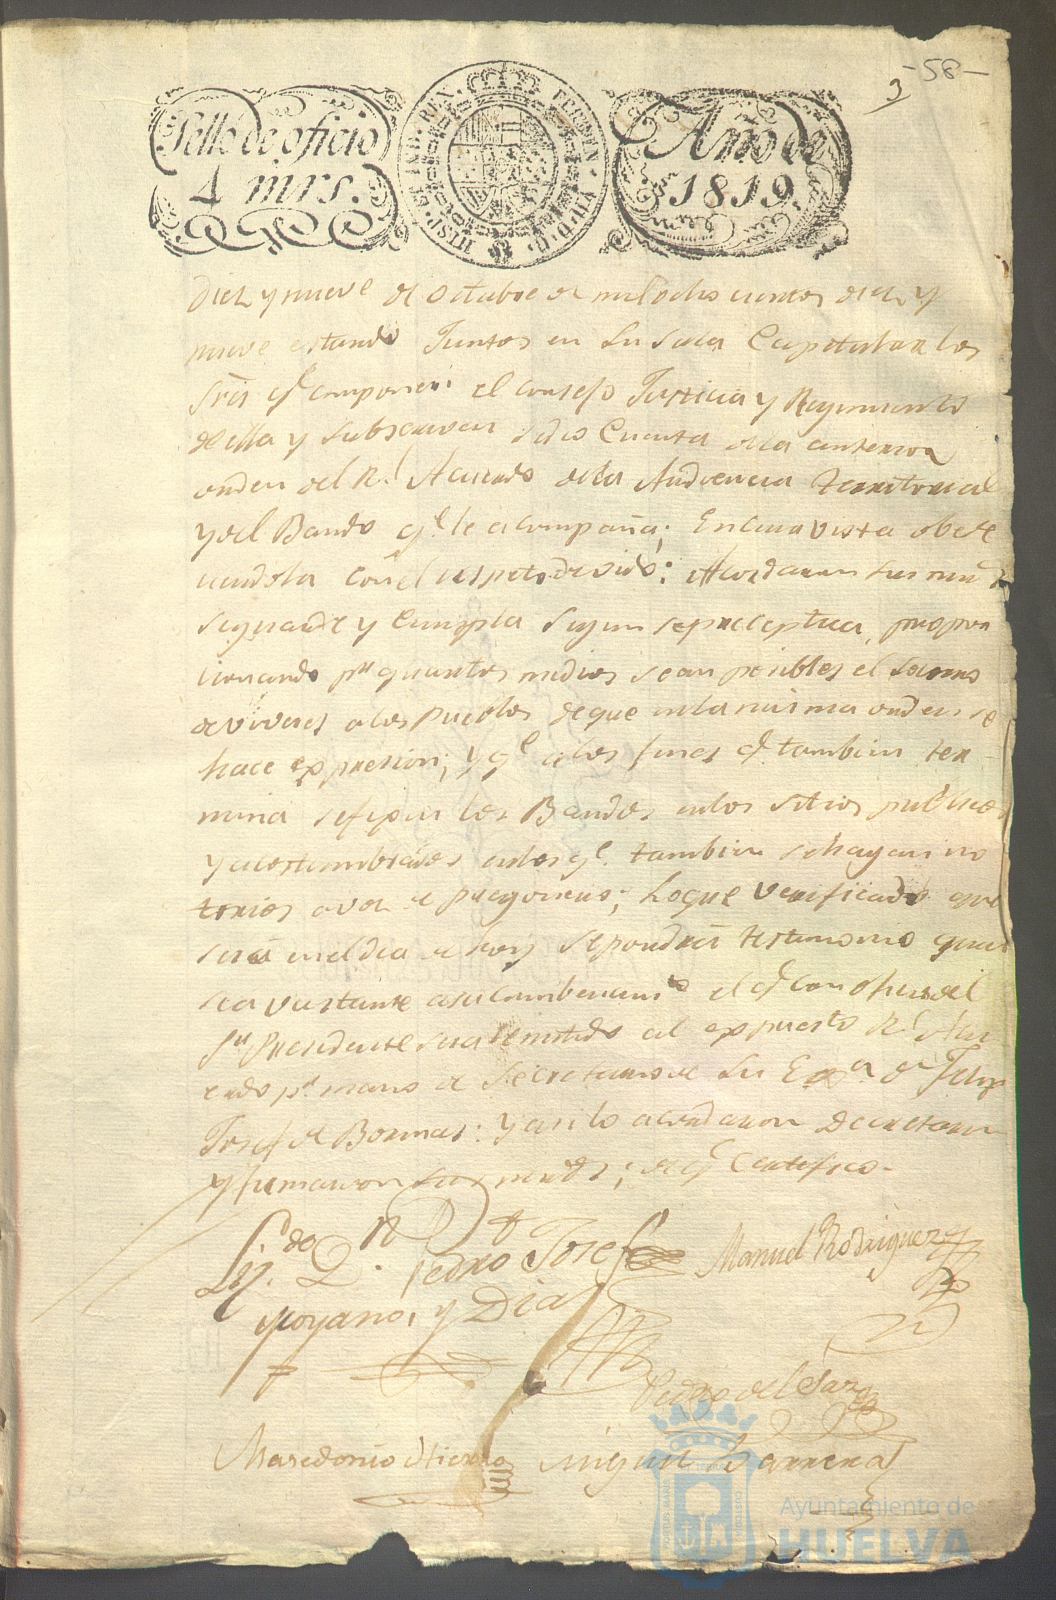 -58-
3
Sello de oficio
4 mrs.
HISP. ET IND. REX. FERDIN. VII. D. G.
Año de
1819.
Diez y nueve de Octubre de mil ocho cientos diez y
nueve estando Juntos en su sala Capitular los
Sres. qe. componen el consejo Justicia y Regimiento
de ella y subscriven se dio Cuenta de la anterior
orden del Rl. Acuerdo de la Audiencia territorial
y del Bando qe. le acompaña; En cuia vista obede
ciendola con el respeto devido: Acordaron sus mrds.
se guarde y Cumpla segun se preceptua, propor
cionando pr. quantos medios sean posibles el socorro
de viveres a los pueblos de que en la misma orden se
hace expresion; y qe. a los fines qe. tambien ter
mina se fixen los Bandos en los sitios publicos
y acostumbrados en los qe. tambien se hagan no
torios a voz de pregonero; Lo que verificado que
sera en el dia de hoy se pondra testimonio que
sea vastante a su cumplimto. el qe. con oficio del
Sr. Presidente sera remitido al expuesto Rl. Acu
erdo pr. mano de Secretario de Su Exa. Dn. Felip
Josef de Bormas: y asi lo acordaron Decretaron
y firmaron sus mrds; de qe. Certifico.
Lizdo. Dn. Pedro Josef
Moyano, y Diaz
Manuel Rodriguez
Pedro del
Masedonio de Hierro
Miguel Barrera
Ayuntamiento de
HUELVA